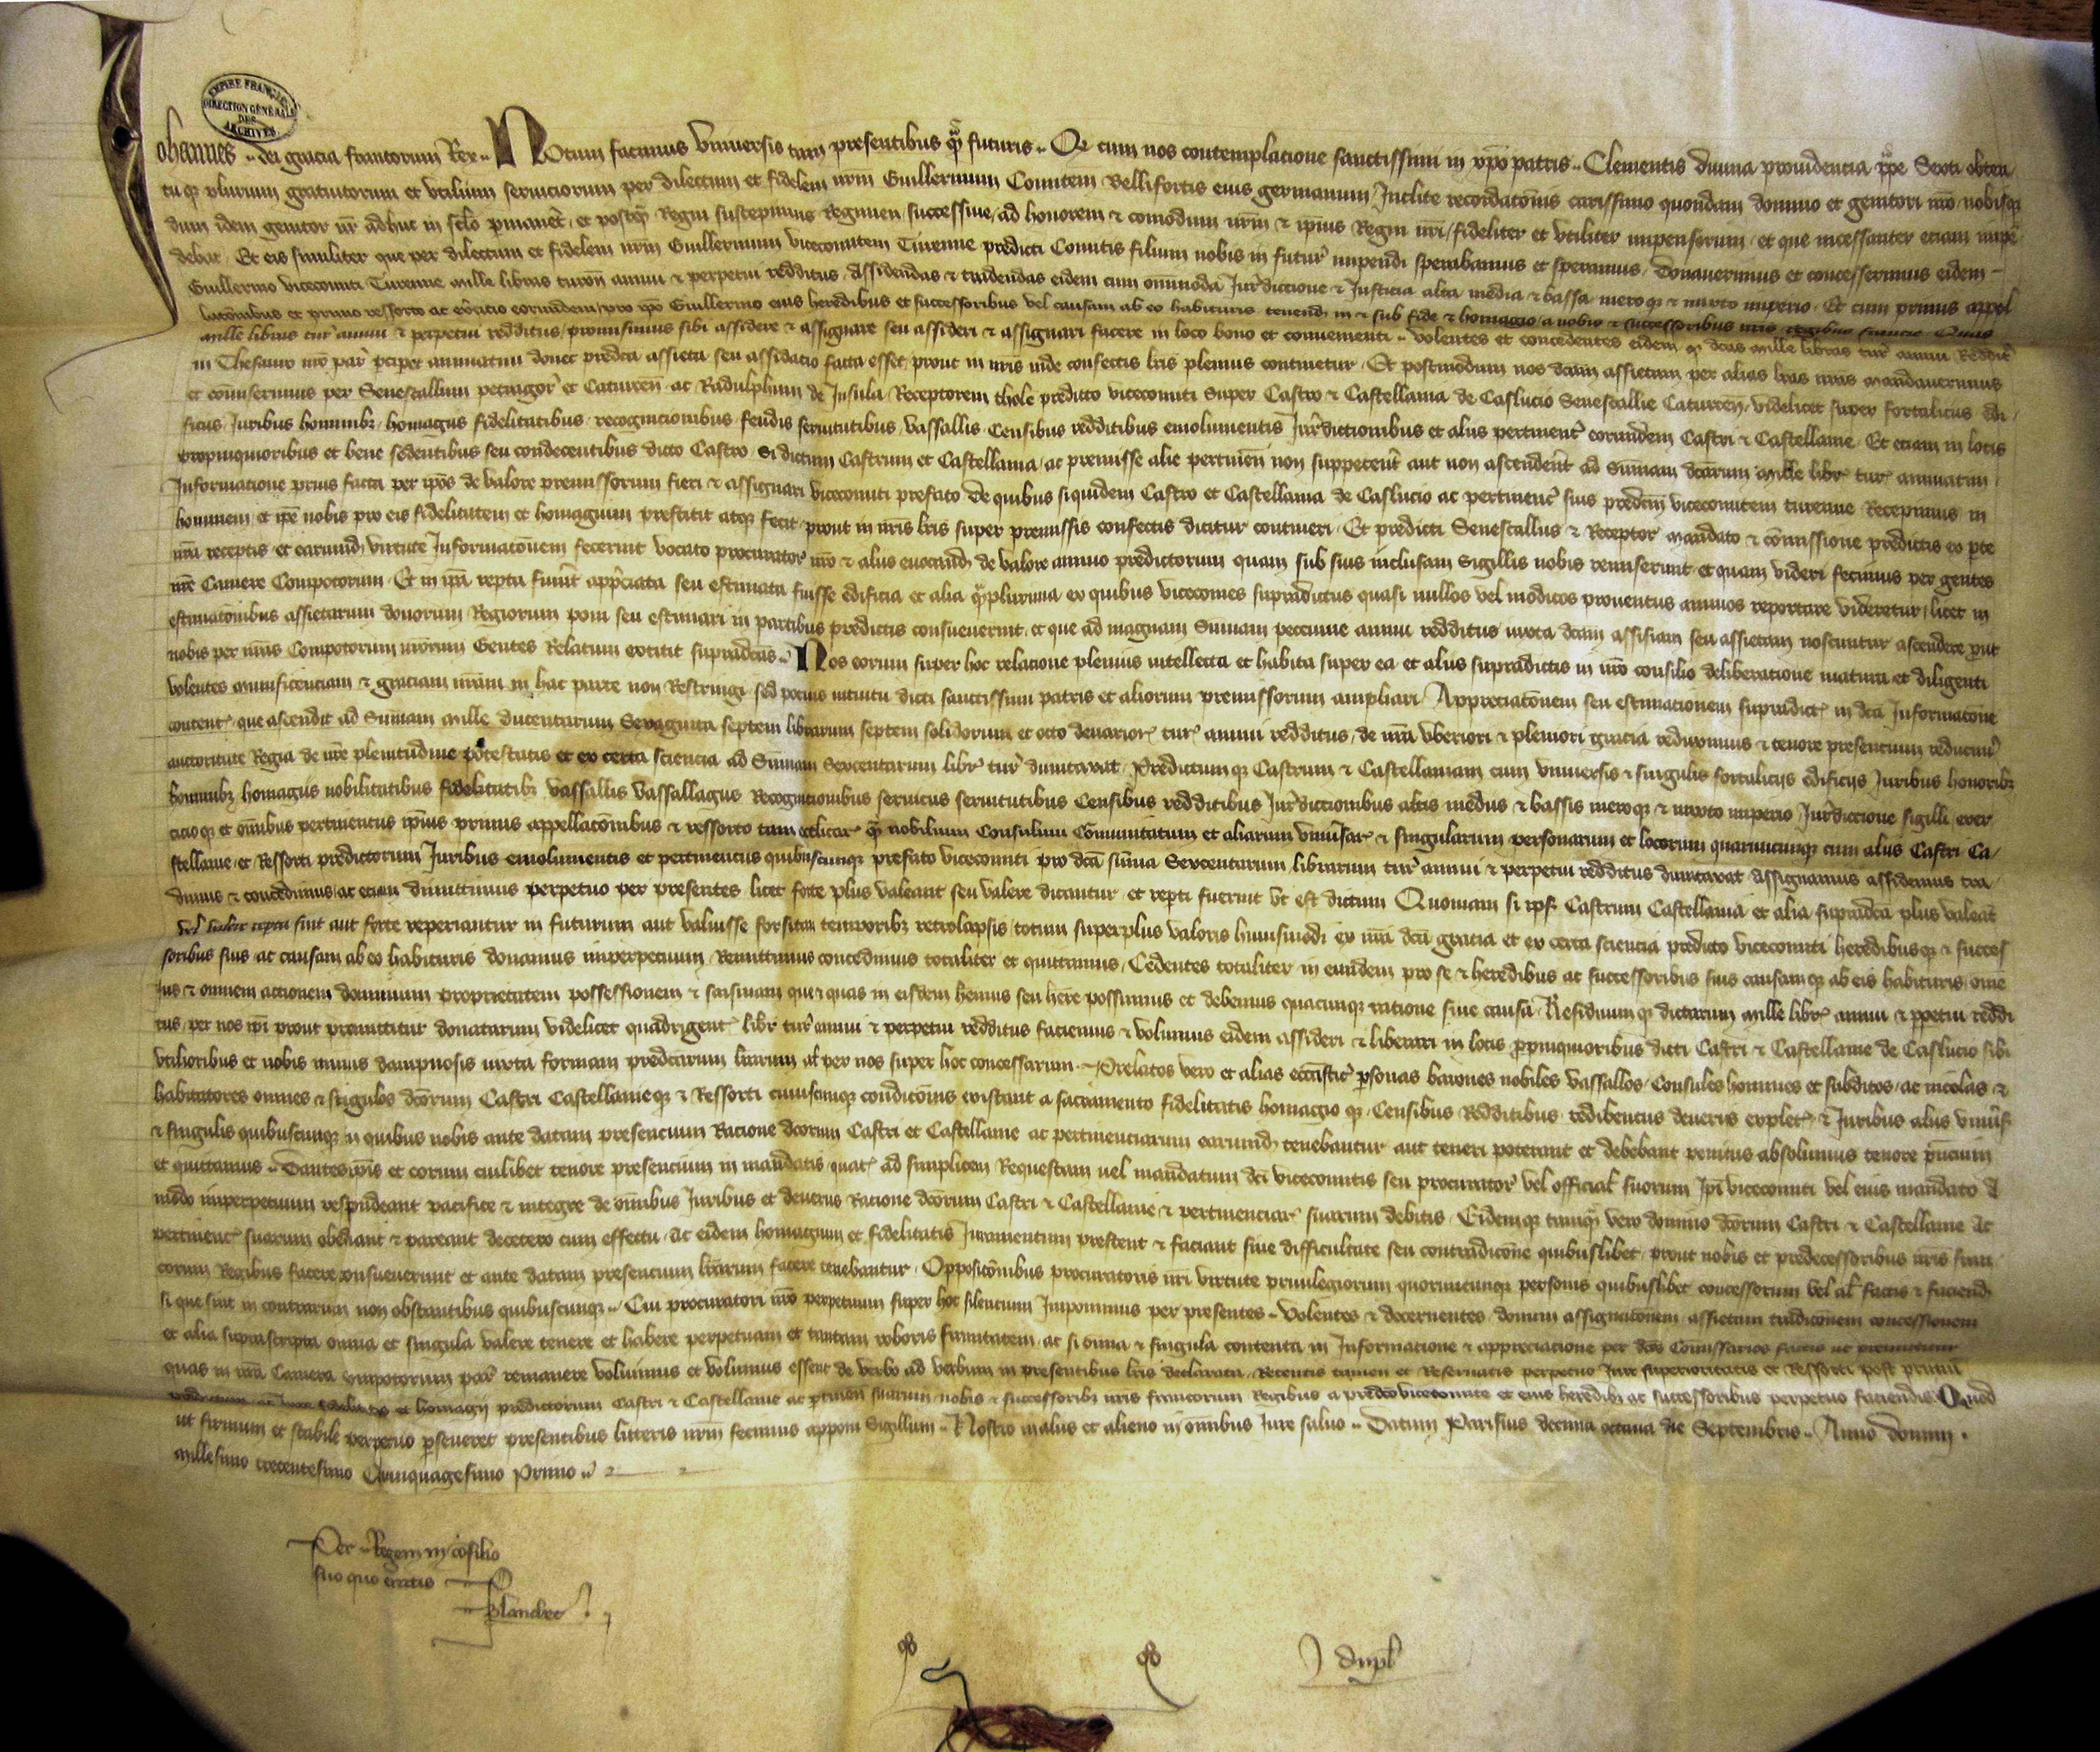 EMPIRE FRANÇAIS
DIRECTION GÉNÉRALE
DES
ARCHIVES
Johannes dei gracia francorum Rex Notum facimus Universis tam presentibus qam futuris Qd cum nos contemplacione sanctissimi in xpo patris Clementis divina providencia ppe Sexti obten
tu qz plurium gratuitorum et utilium serviciorum per dilectum et fidelem nrm Guillermum Comitem Bellifortis eius germanum Inclite recordatonis carissimo quondam domino et genitori nro nobisqz
dum idem genitor nr adhuc in sclo pmanet et postqam Regni suscepimus Regimen successive ad honorem et comodum nrm et ipius Regni nri fideliter et utiliter impensorum et que incessanter etiam impe
debat Et eis similiter que per dilectum et fidelem nrm Guillermum vicecomitem Turenne predicti Comitis filium nobis in futur impendi sperabamus et speramus donaverimus et concesserimus eidem
Guillermo vicecomiti Turenne mille libras turon annui et perpetui redditus assidendas et tradendas eidem cum omimoda Jurdiccione et Justicia alta media et bassa mero qz et mixto imperio Et cum primis appel
lacionibus et primo ressorto ac exercicio eorumdem pro ipo Guillermo eius heredibus et successoribus vel causam ab eo habituris tenend in et sub fide et homagio a nobis et successoribus nris regibus francie Quas
mille libras tur annui et perpetui redditus promisimus sibi assidere et assignare seu assideri et assignari facere in loco bono et convenienti volentes et concedentes eidem qz dcas mille libras tur annui Reddit
in Thesauro nro par pciper annuatim donec predca assieta seu assidacio facta esset prout in nris inde confectis lris plenius continetur Et postmodum nos dcam assietam per alias lras nras mandaverimus
et comiserimus per Senescallum petragor et Caturcen ac Radulphum de Insula Receptorem thole predicto vicecomiti Super Castro et Castellania de Caslucio Senescallie Caturcen videlicet super fortaliciis edi
ficiis Juribus hominibz homagiis fidelitatibus recognicionibus feudis servitutibus vassallis Censibus redditibus emolumentis Jurdictionibus et aliis pertinent eorumdem Castri et Castellanie Et etiam in locis
propinquioribus et bene sedentibus seu condecentibus dicto Castro si dictum Castrum et Castellania ac premisse alie pertinen non suppeterent aut non ascenderent ad Sumam dcarum mille libr tur annuatim
Informatione prius facta per ipos de valore premissorum fieri et assignari vicecomiti prefato de quibus siquidem Castro et Castellania de Caslucio ac pertinent suis predcm vicecomitem turenne Recepimus in
hominem et ipe nobis pro eis fidelitatem et homagium prestitit atqz fecit prout in nris lris super premissis confectis dicitur contineri Et predicti Senescallus et Receptor mandato et comissione predictis ex pte
nra receptis et earumd virtute Informatonem fecerint vocato procurator nro et aliis evocand de valore annuo predictorum quam sub suis inclusam Sigillis nobis remiserunt et quam videri fecimus per gentes
nre Camere Compotorum Et in ipa repta fuert appciata seu estimata fuisse edificia et alia qamplurima ex quibus vicecomes supradictus quasi nullos vel modicos proventus annuos reportare videretur licet in
estimatonibus assietarum donorum Regiorum poni seu estimari in partibus predictis consueverint et que ad magnam Sumam peccunie annui redditus iuxta dcam assisiam seu assietam noscuntur ascendere put
nobis per nras Compotorum nrorum Gentes Relatum extitit supradcas Nos eorum super hoc relacione plenius intellecta et habita super ea et aliis supradictis in nro consilio deliberatione matura et diligenti
volentes munificenciam et graciam nram in hac parte non Restringi sed pocius intuitu dicti sanctissimi patris et aliorum premissorum ampliari Appreciatonem seu estimationem supradict in dca Informatone
content que ascendit ad Sumam mille ducentarum Sexaginta septem librarum septem solidorum et octo denarior tur annui redditus de nra uberiori et pleniori gracia reduximus et tenore presencium reducim
auctoritate Regia de nre plenitudine potestatis et ex certa sciencia ad Sumam Sexcentarum libr tur dumtaxat Predictumqz Castrum et Castellaniam cum universis et singulis fortaliciis edificiis Juribus honoribz
hominibz homagiis nobilitatibus fidelitatibz vassallis Vassallagiis Recognicionibus serviciis servitutibus Censibus redditibus Jurdiccionibus altis mediis et bassis meroqz et mixto imperio Jurdiccione sigilli exer
cicioqz et omibus pertinenciis ipius primis appellatonibus et ressorto tam ecclicar qam nobilium Consulum Comunitatum et aliarum universar et singularum personarum et locorum quarumcumqz cum aliis Castri Ca
stellanie et Ressorti predictorum Juribus emolumentis et pertinenciis quibuscumqz prefato vicecomiti pro dca suma Sexcentarum librarum tur annui et perpetui redditus dumtaxat assignamus assidemus tra
dimus et concedimus ac etiam dimittimus perpetuo per presentes licet forte plus valeant seu valere dicantur et repti fuerint ut est dictum Quoniam si ips Castrum Castellania et alia supradca plus valeat
vel valere repta sint aut forte reperiantur in futurum aut valuisse forsitan temporibz retrolapsis totum superplus valoris huiusmodi ex nra dca gracia et ex certa sciencia predicto vicecomiti heredibusqz et succes
soribus suis ac causam ab eo habituris donamus imperpetuum Remittimus concedimus totaliter et quittamus Cedentes totaliter in eumdem pro se et heredibus ac successoribus suis causamqz ab eis habituris ome
ius et omnem actionem dominium proprietatem possessionem et saisinam que et quas in eisdem hemus seu here possumus et debemus quacumqz ratione sive causa Residuumqz dictarum mille libr annui et ppetui reddi
tus per nos ipi prout premittitur donatarum videlicet quadrigent libr tur annui et perpetui redditus faciemus et volumus eidem assideri et liberari in locis ppinquioribus dicti Castri et Castellanie de Caslucio sibi
utilioribus et nobis minus dampnosis iuxta formam predcarum lrarum al per nos super hoc concessarum Prelatos vero et alias eccastic psonas barones nobiles vassallos Consules homines et subditos ac incolas et
habitatores omnes et singulos dcorum Castri Castellanieqz et Ressorti cuiuscumqz condicionis existant a sacramento fidelitatis homagio qz Censibus Redditibus redibenciis deveriis explet et Juribus aliis univs
et singulis quibuscumqz in quibus nobis ante datam presencium Racione dcorum Castri et Castellanie ac pertinenciarum earumd tenebantur aut teneri poterant et debebant penitus absolvimus tenore psencium
et quittamus Dantes ipis et eorum cuilibet tenore presencium in mandatis quat ad simplicem Requestam vel mandatum dci vicecomitis seu procurator vel official suorum Ipi vicecomiti vel eius mandato
modo imperpetuum respondeant pacifice et integre de omibus Juribus et deveriis Racione dcorum Castri et Castellanie et pertinenciar suarum debitis Eidemqz tamqam vero domino dcorum Castri et Castellanie ac
pertinenc suarum obediant et pareant decetero cum effectu ac eidem homagium et fidelitatis Juramentum prestent et faciant sine difficultate seu contradicone quibuslibet prout nobis et predecessoribus nris fran
corum Regibus facere consueverunt et ante datam presencium lrarum facere tenebantur Oppositonibus procuratoris nri virtute privilegiorum quorumcumqz personis quibuslibet concessorum vel al factis et faciend
si que sint in contrarium non obstantibus quibuscumqz Cui procuratori nro perpetuum super hoc silencium Imponimus per presentes volentes et decernentes donum assignaconem assietam tradiconem concessionem
et alia suprascripta omnia et singula valere tenere et habere perpetuam et tantam roboris firmitatem ac si omia et singula contenta in Informatione et appreciacione per dcos Comissarios factis ut premittitur
quas in nra Camera compotorum par remanere volumus et volumus essent de verbo ad verbum in presentibus lris declarata Retentis tamen et Reservatis perpetuo Jure superioritatis et Ressorti post primu
et homagii predictorum Castri et Castellanie ac ptinen suarum nobis et successoribz nris francorum Regibus a predco vicecomite et eius heredibz ac successoribus perpetuo faciendis Quod
ut firmum et stabile perpetuo pseveret presentibus litteris nrm fecimus apponi Sigillum Nostro in aliis et alieno in omibus Jure salvo Datum Parisius decima octava die Septembris Anno domini
millesimo trecentesimo Quinquagesimo Primo
Per Regem in cosilio
suo quo eratis
P Blanchet
dupl